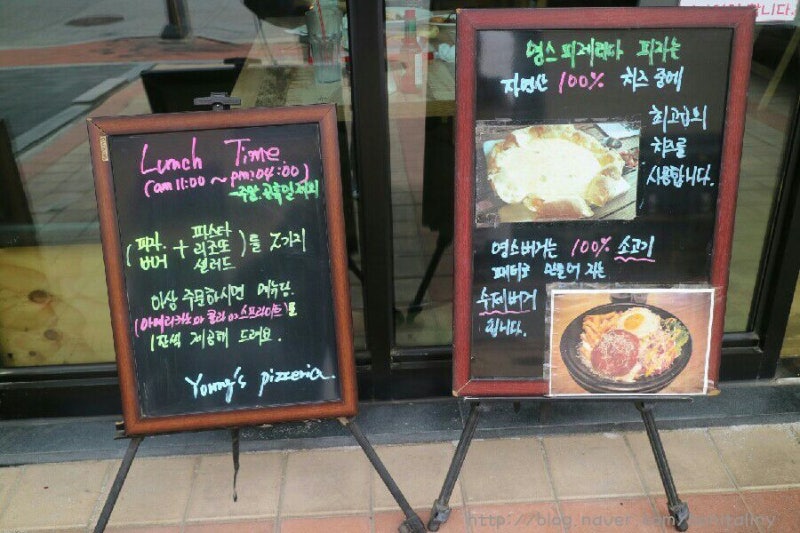 Lunch Time.
(am 11:00 ~ pm:04:00)
-주말.공휴일제외
(피자. 버거 + 파스타 리조또 샐러드)를 2가지
이상 주문하시면 메뉴당.
(아메리카노 or 콜라 or 스프라이트)를
1잔씩 제공해 드려요.
Young's pizzeria.
영스 피제리아 피자는
자연산 100% 치즈 중에
최고급의
치즈를
사용합니다.
영스버거는 100% 소고기
패티로 만들어 지는
수제버거
입니다.
http://blog.naver.com/